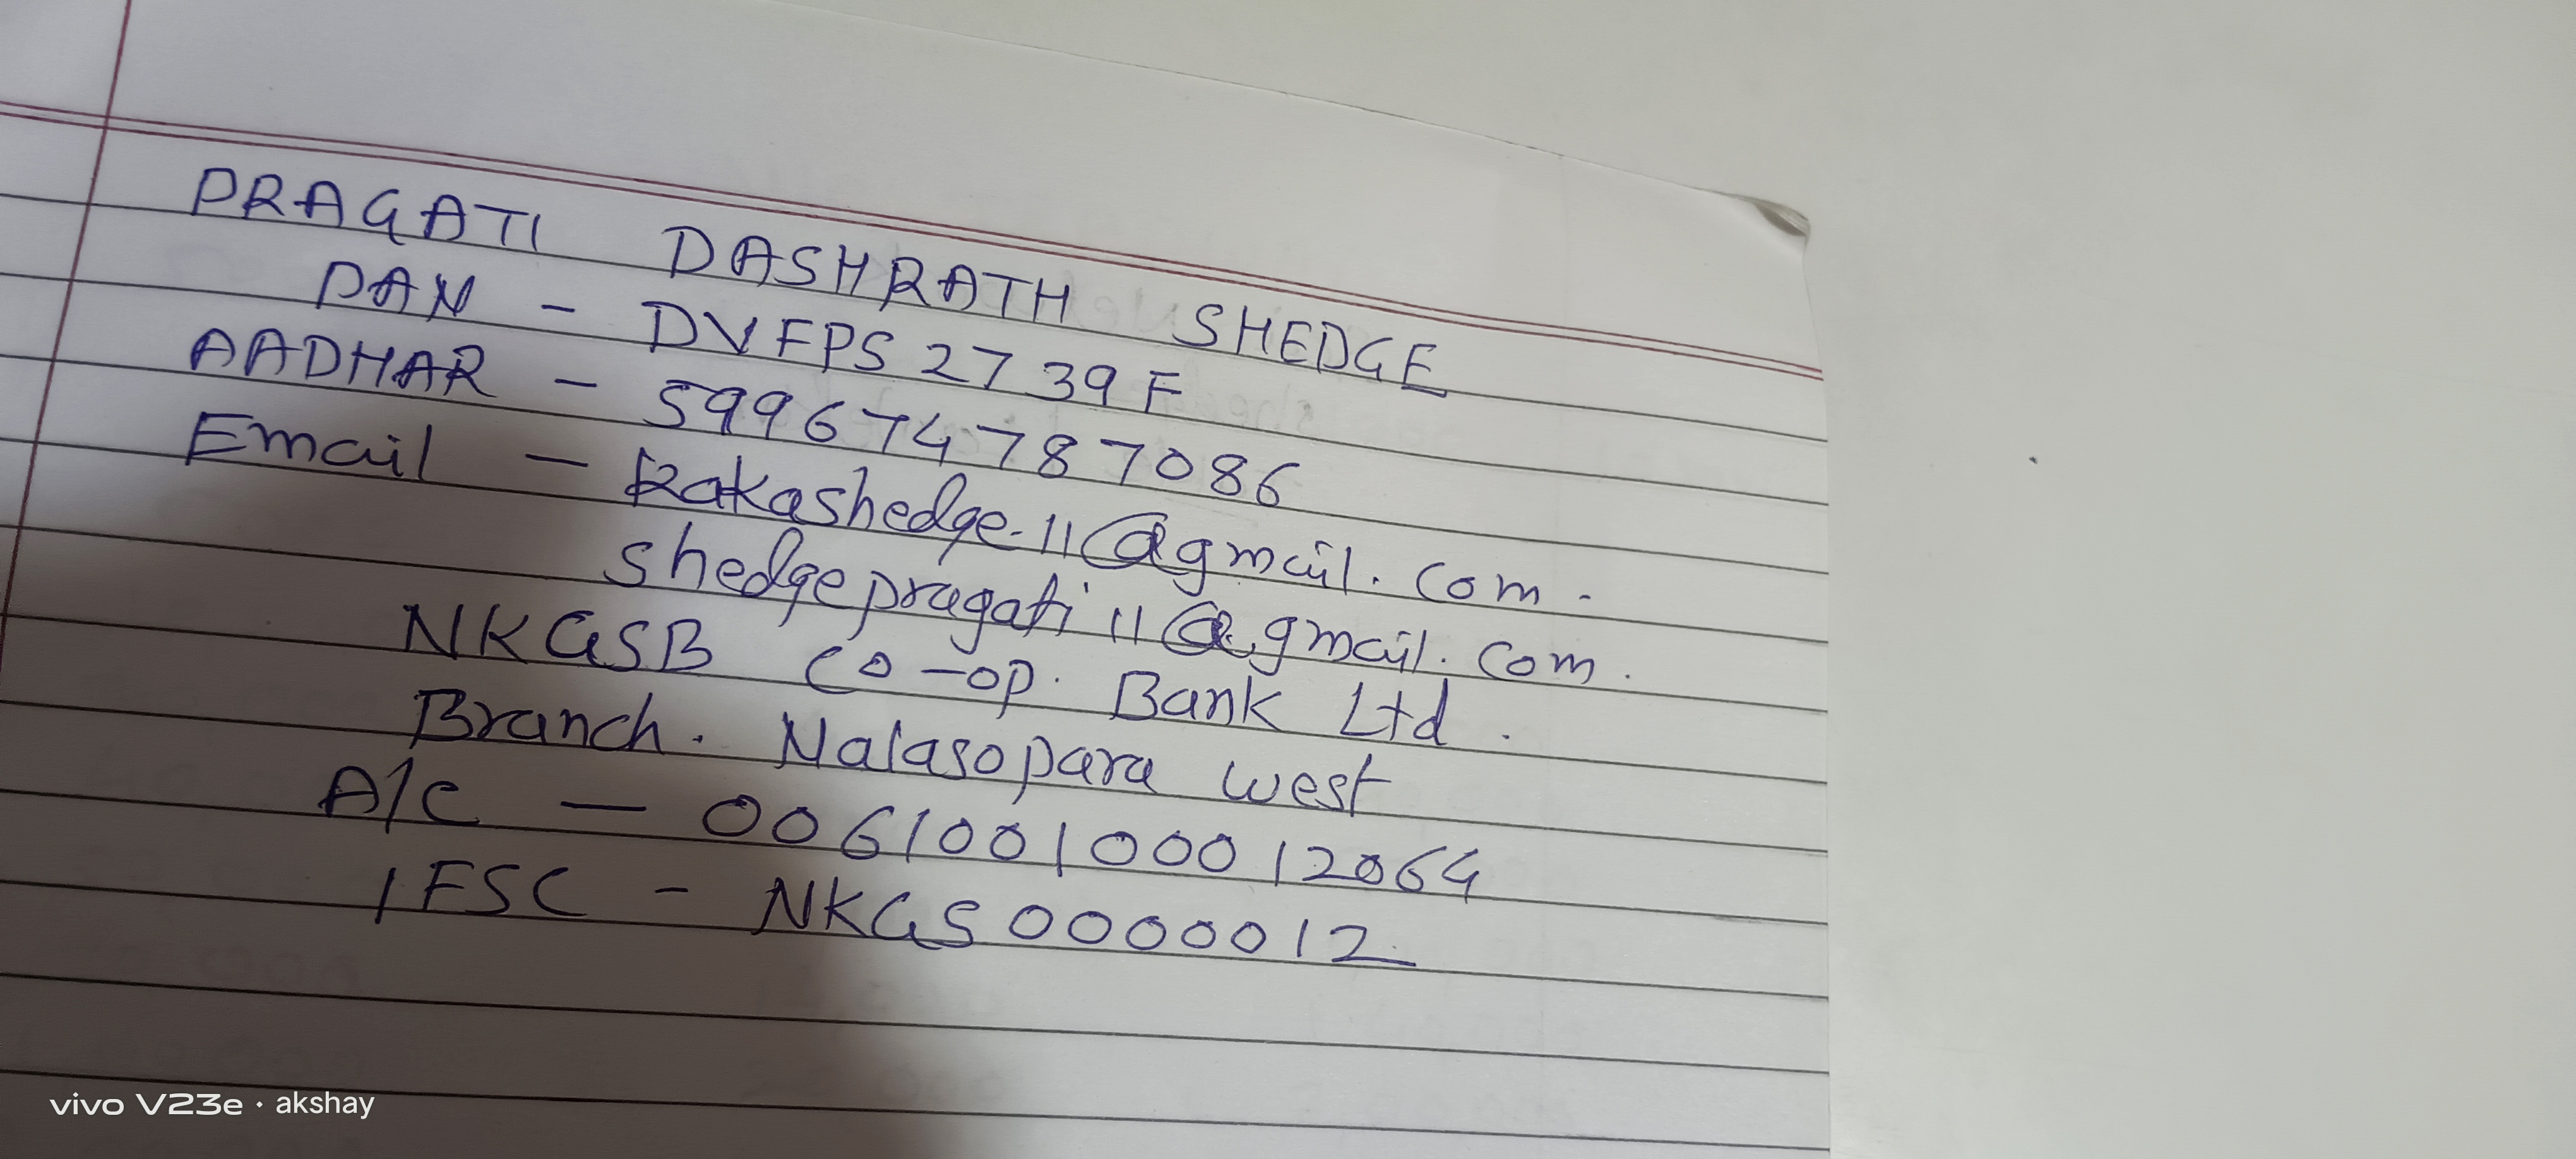 PRAGATI DASHRATH SHEDGE
PAN - DVFPS2739F
AADHAR - 599674787086
Email - kakashedge.11@gmail.com.
shedgepragati11@gmail.com.
NKGSB Co-op. Bank Ltd.
Branch. Nalasopara west
A/C - 006100100012064
IFSC - NKGS0000012
vivo V23e · akshay